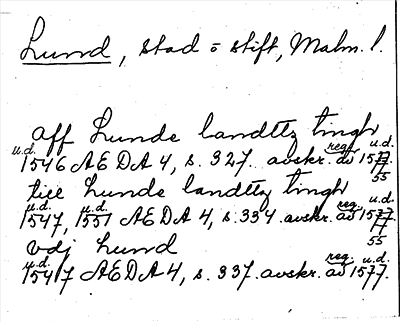 Lund, stad o stift, Malm. l.
aff Lunde landttz tingh
u.d. 1546 AEDA 4, s. 327. avskr. av reg. u.d. 1577
55
till Lunde landttz tingh
u.d. 1547, u.d. 1551 AEDA 4, s. 334. avskr. av reg. u.d. 1577
55
vdj Lund
u.d. 1547 AEDA 4, s. 337. avskr. av reg. u.d. 1577.